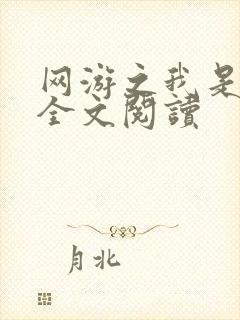 网游之我是
全文閱讀
月北